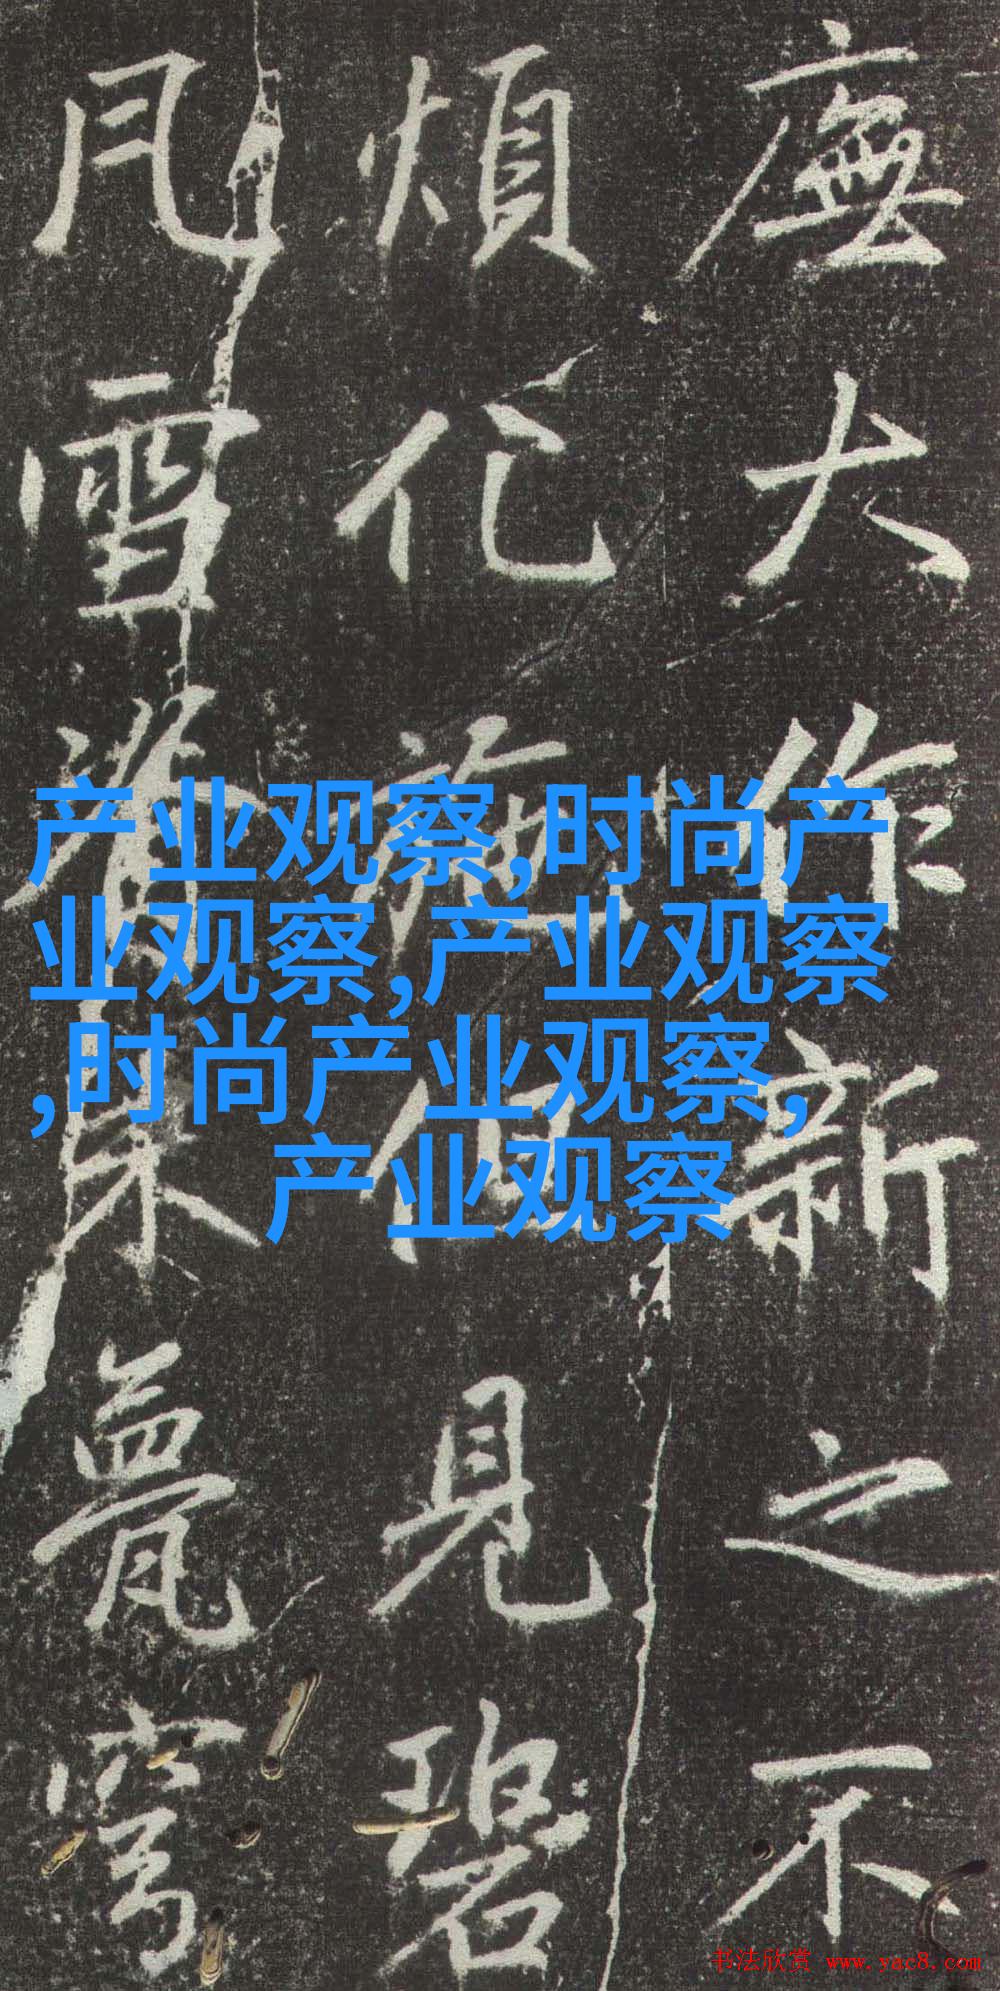 廡大作新之不
煩化施但見碧
瓦雪朱甍穹
产业观察,时尚产
业观察,产业观察
,时尚产业观察,
产业观察
书法欣赏 www.yac8.com